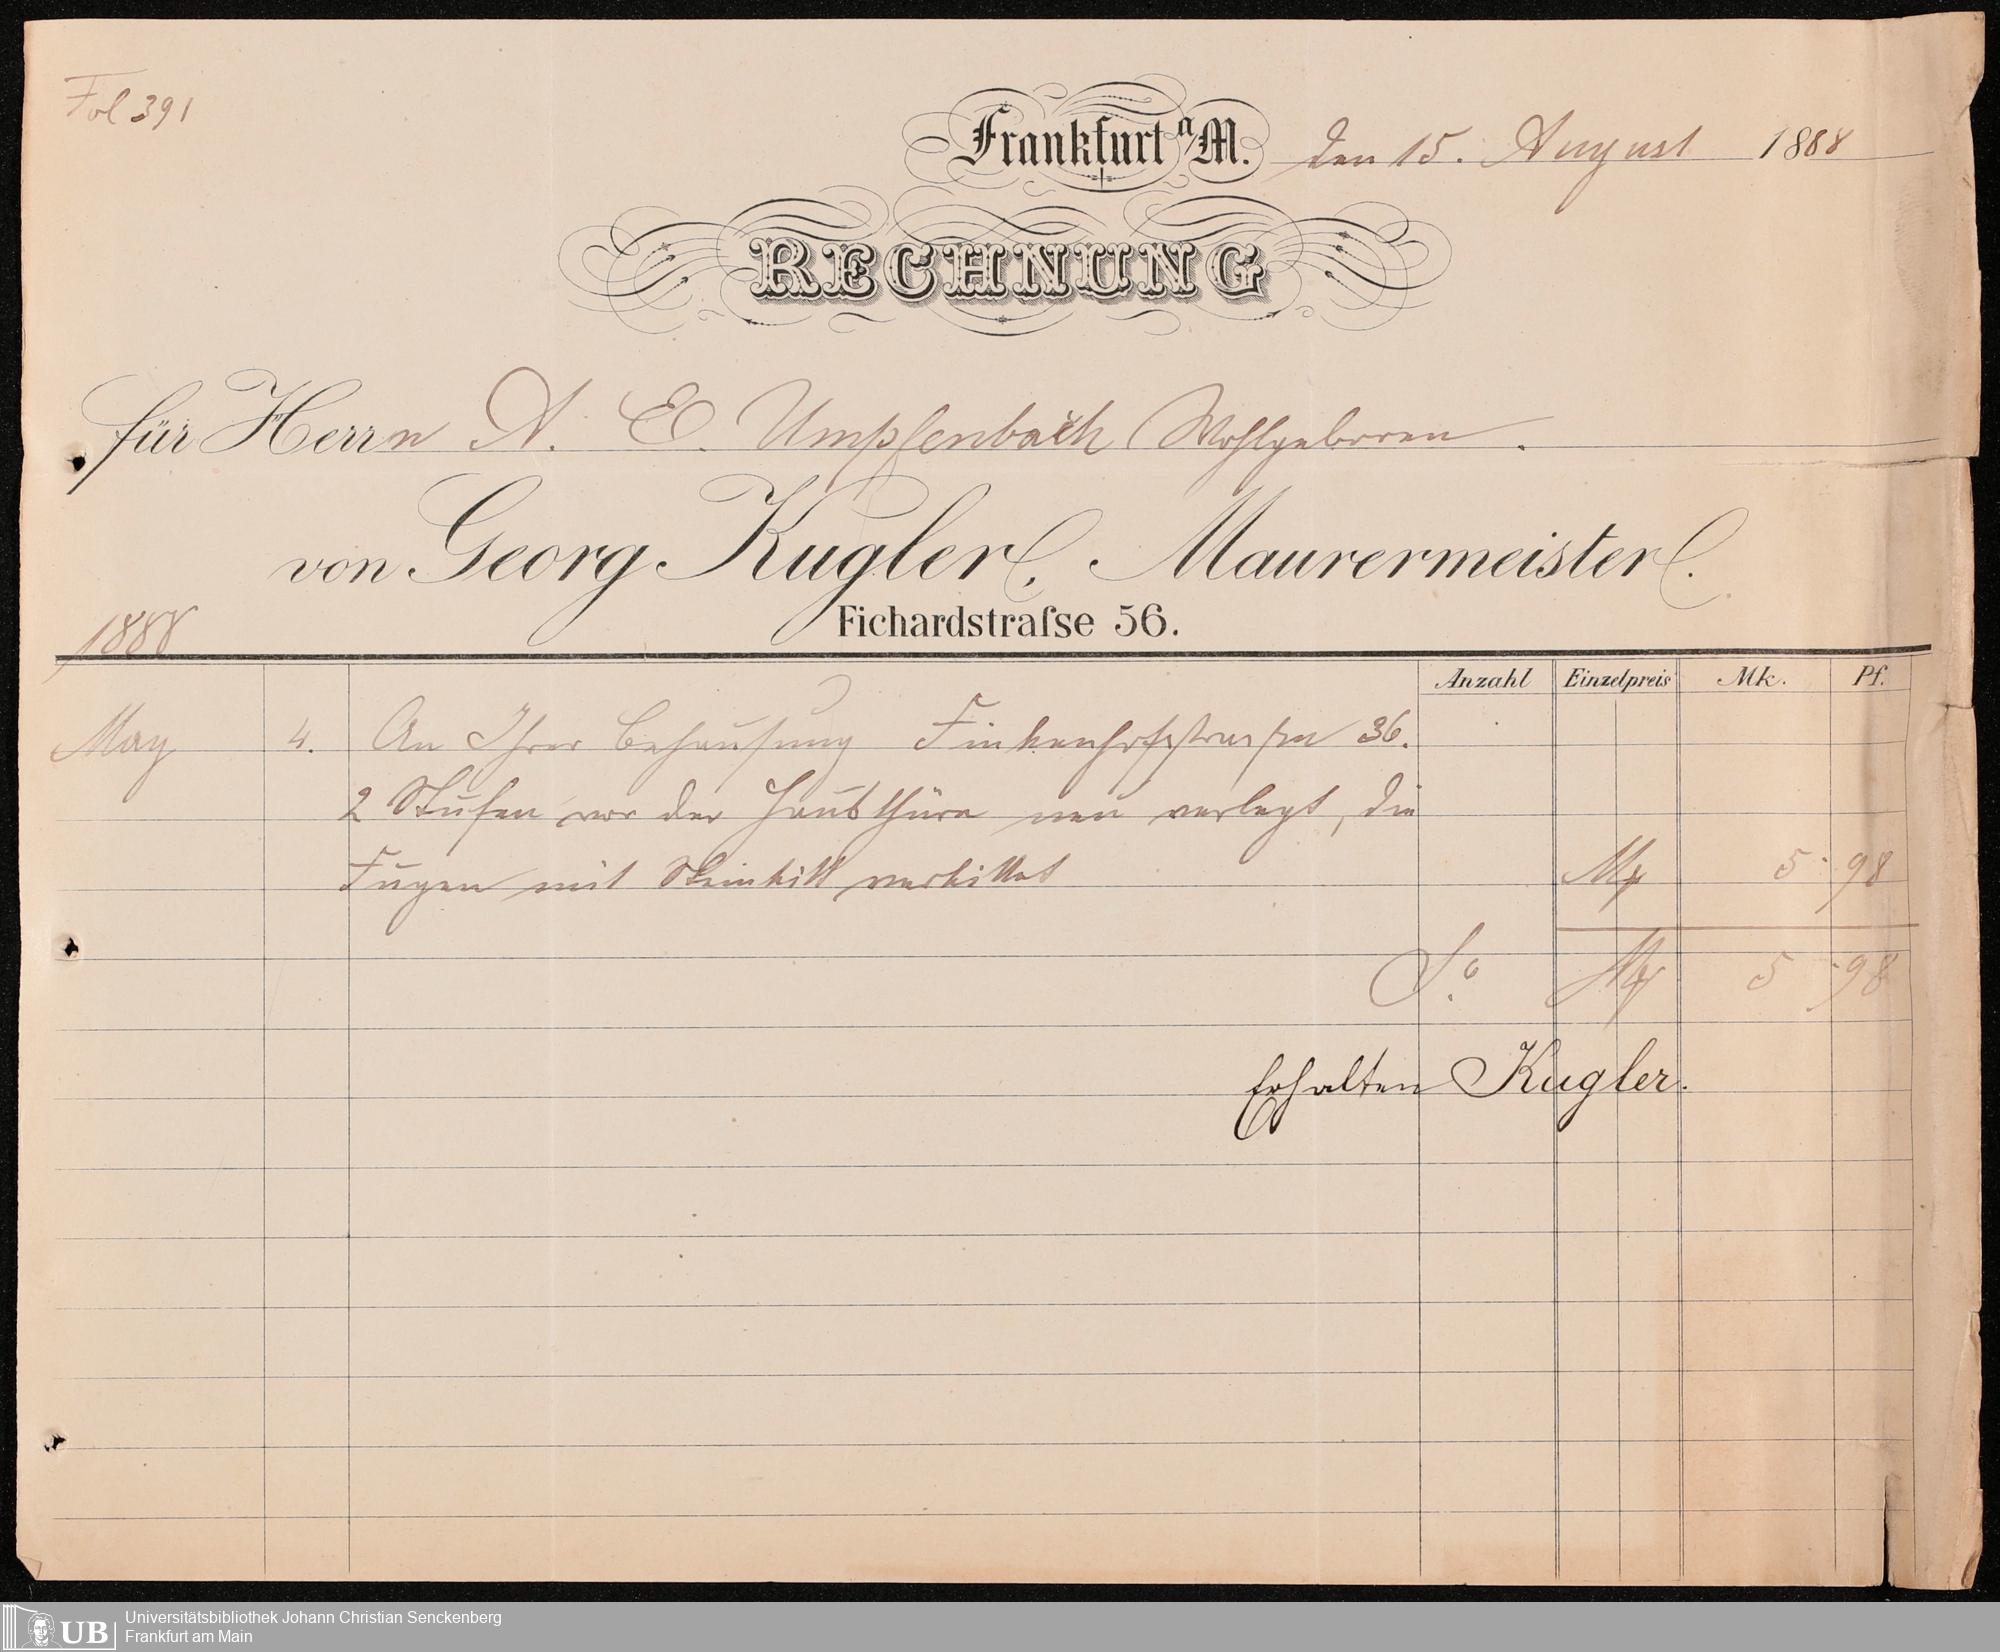 Fol 391
Frankfurt a/M. den 15. August 1888
RECHNUNG
für Herrn A. E. Umpfenbach Wohlgeboren.
von Georg Kugler, Maurermeister.
Fichardstraſse 56.
1888
Anzahl Einzelpreis Mk. Pf.
May 4. An Ihrer Behausung Finkenhofstrasse 36.
2 Stufen vor der Hausthüre neu verlegt, die
Fugen mit Steinkitt verkittet Mk 5 98
Sa Mk 5 98
Erhalten Kugler.
UB Universitätsbibliothek Johann Christian Senckenberg
Frankfurt am Main